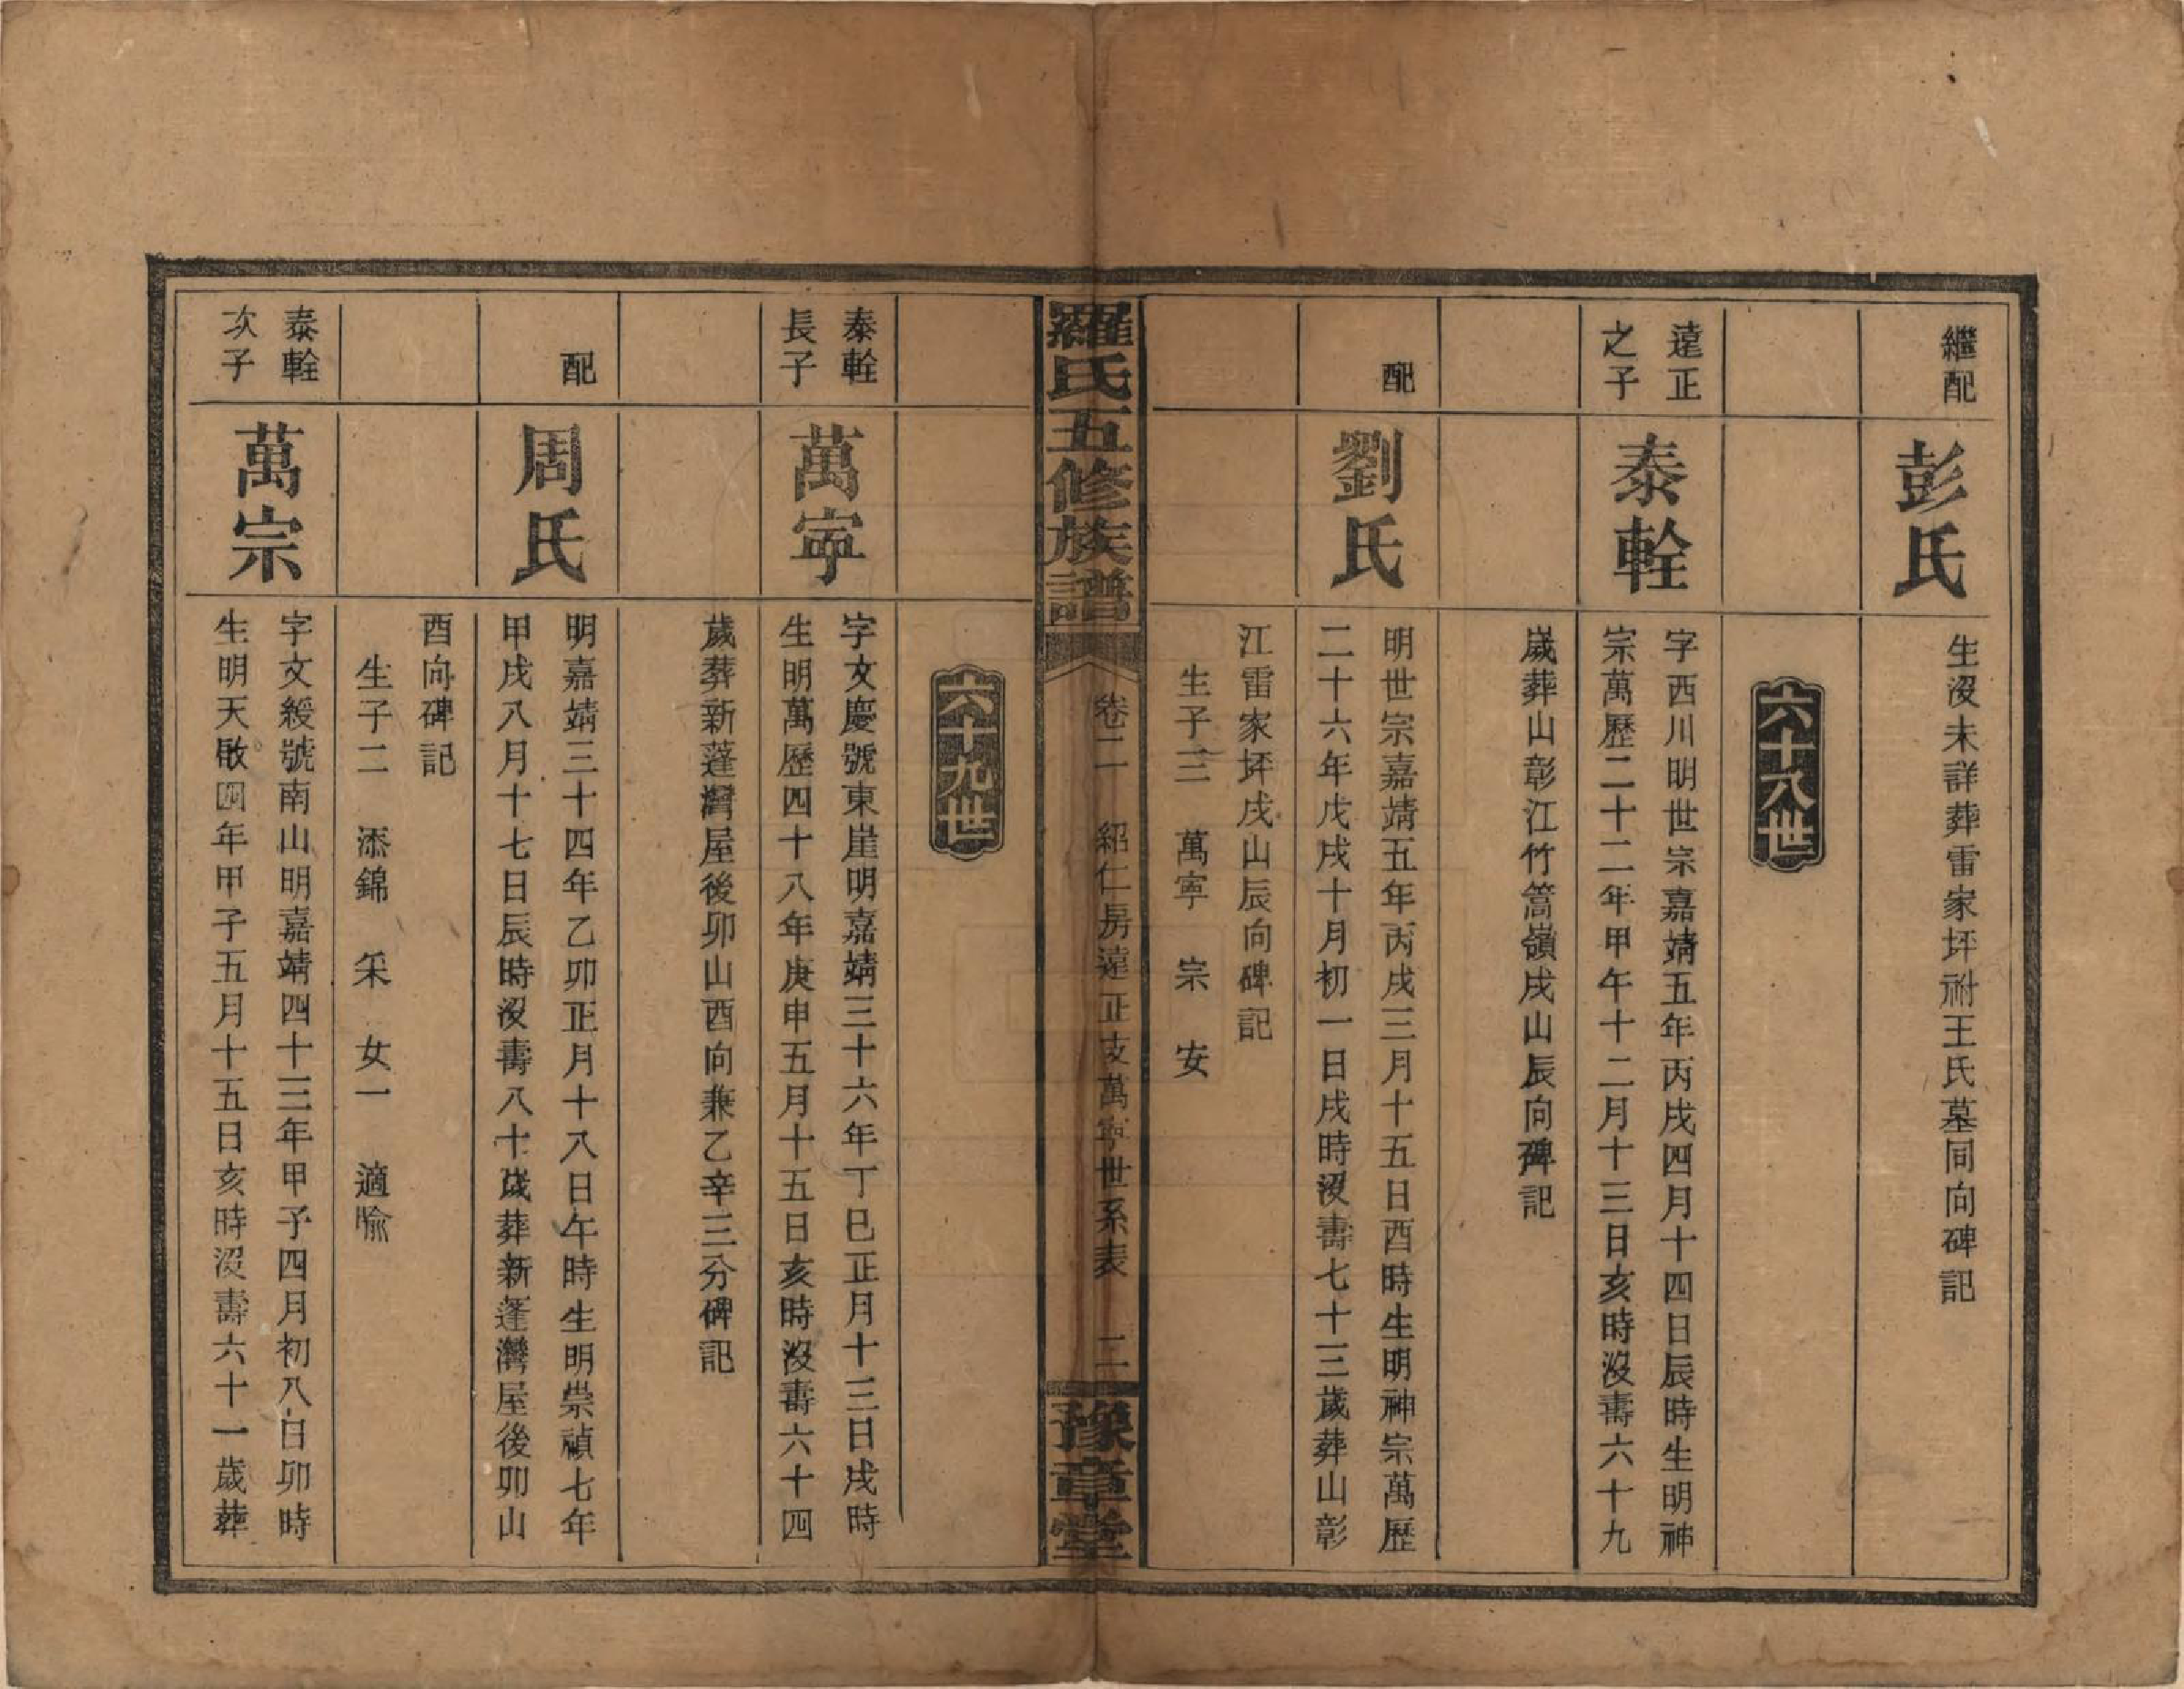 繼配
彭氏
生沒未詳葬雷家坪祔王氏墓同向碑記
六十八世
遠正
之子
泰輇
字西川明世宗嘉靖五年丙戌四月十四日辰時生明神
宗萬歷二十二年甲午十二月十三日亥時沒壽六十九
歲葬山彰江竹篙嶺戌山辰向碑記
配
劉氏
明世宗嘉靖五年丙戌三月十五日酉時生明神宗萬歷
二十六年戊戌十月初一日戌時沒壽七十三歲葬山彰
江雷家坪戌山辰向碑記
生子三 萬寜 宗 安
羅氏五修族譜 卷二 紹仁房遠正支萬寜世系表 二 豫章堂
六十九世
泰輇
長子
萬寜
字文慶號東崖明嘉靖三十六年丁巳正月十三日戌時
生明萬歷四十八年庚申五月十五日亥時沒壽六十四
歲葬新蓬灣屋後卯山酉向兼乙辛三分碑記
配
周氏
明嘉靖三十四年乙卯正月十八日午時生明崇禎七年
甲戌八月十七日辰時沒壽八十歲葬新蓬灣屋後卯山
酉向碑記
生子二 添錦 采 女一 適喻
泰輇
次子
萬宗
字文綬號南山明嘉靖四十三年甲子四月初八日卯時
生明天啟四年甲子五月十五日亥時沒壽六十一歲葬